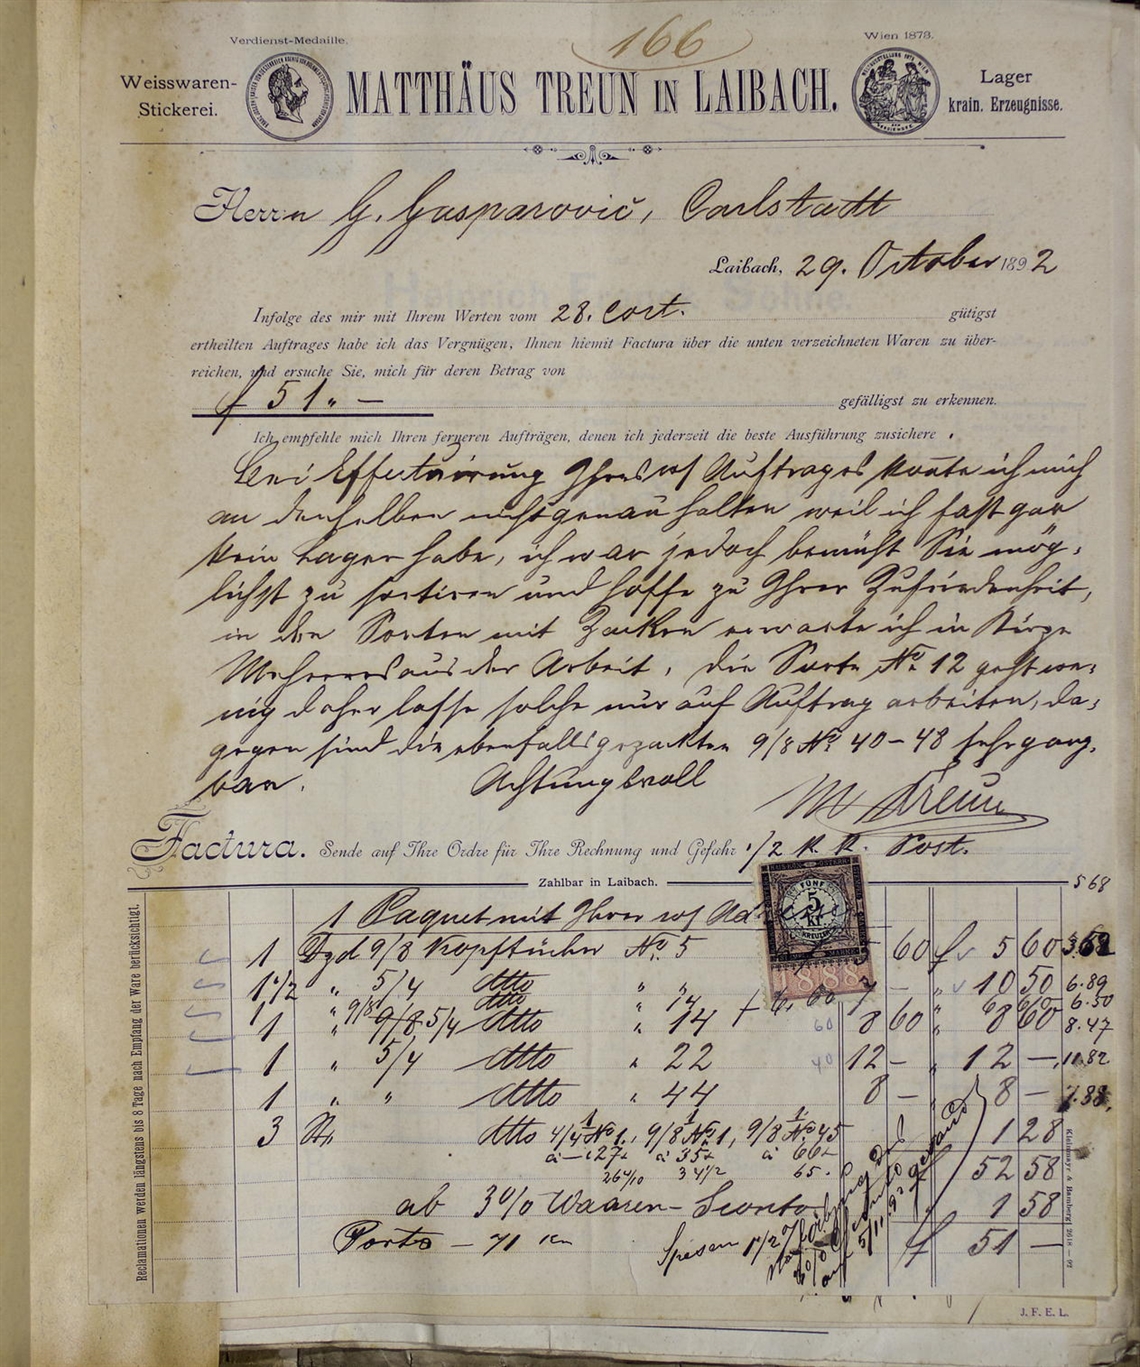 166
Verdienst-Medaille.
Wien 1873.
Weisswaren-
Stickerei.
MATTHÄUS TREUN IN LAIBACH.
Lager
krain. Erzeugnisse.
Herrn G. Gasparovič, Carlstadt
Laibach, 29. October 1892
Infolge des mir mit Ihrem Werten vom 28. cort. gütigst
ertheilten Auftrages habe ich das Vergnügen, Ihnen hiemit Factura über die unten verzeichneten Waren zu über-
reichen, und ersuche Sie, mich für deren Betrag von
f 51 „ — gefälligst zu erkennen.
Ich empfehle mich Ihren ferneren Aufträgen, denen ich jederzeit die beste Ausführung zusichere.
Bei Effectuirung Ihres Auftrages konnte ich mich
an denselben nicht genau halten weil ich fast gar
kein Lager habe, ich war jedoch bemüht Sie mög-
lichst zu sortiren und hoffe zu Ihrer Zufriedenheit,
in den Sorten mit Zacken erwarte ich in Kürze
Mehreres aus der Arbeit, die Sorte No 12 geht we-
nig daher lasse solche nur auf Auftrag arbeiten, da-
gegen sind die ebenfalls gezackten 9/8 No 40-48 sehr gang-
bar. Achtungsvoll
M Treun
Factura. Sende auf Ihre Ordre für Ihre Rechnung und Gefahr K. K. Post.
Zahlbar in Laibach.
568
1 Paquet mit Ihrer
5 Kr.
1888
1 Dzd 9/8 Kopftücher No. 5 60 f 5 60
1 1/2 „ 5/4 dtto „ „ 7 — „ 10 50 6.89
1 „ 9/8 dtto „ 14 6.50
1 „ 5/4 dtto „ 14 60 8 60 „ 8 60 8.47
1 „ 5/4 dtto „ 22 40 12 — „ 12 — 11.82
1 „ „ dtto „ 44 8 — „ 8 — 7.88
3 St. dtto 4/4 No 1, 9/8 No 1, 9/8 No 45 1 28
à 27 à 35 à 66
26 4/10 34 1/2 65
52 58
ab 3% Waaren-Sconto 1 58
Porto — 71 Kr
Spesen 1 1/2 %
f 51 —
Reclamationen werden längstens bis 8 Tage nach Empfang der Ware berücksichtigt.
Kleinmayr & Bamberg
J. F. E. L.